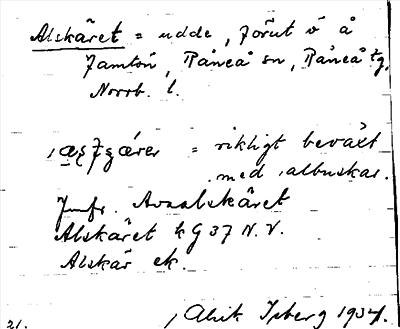 Alskäret = udde, förut ö å
Jamtön, Råneå sn, Råneå tg,
Norrb. l.
= rikligt beväxt
med albuskar.
Jmfr. Avaalskäret
Alskäret k G 37 N.V.
Alskär ek.
21. Isberg 1934.